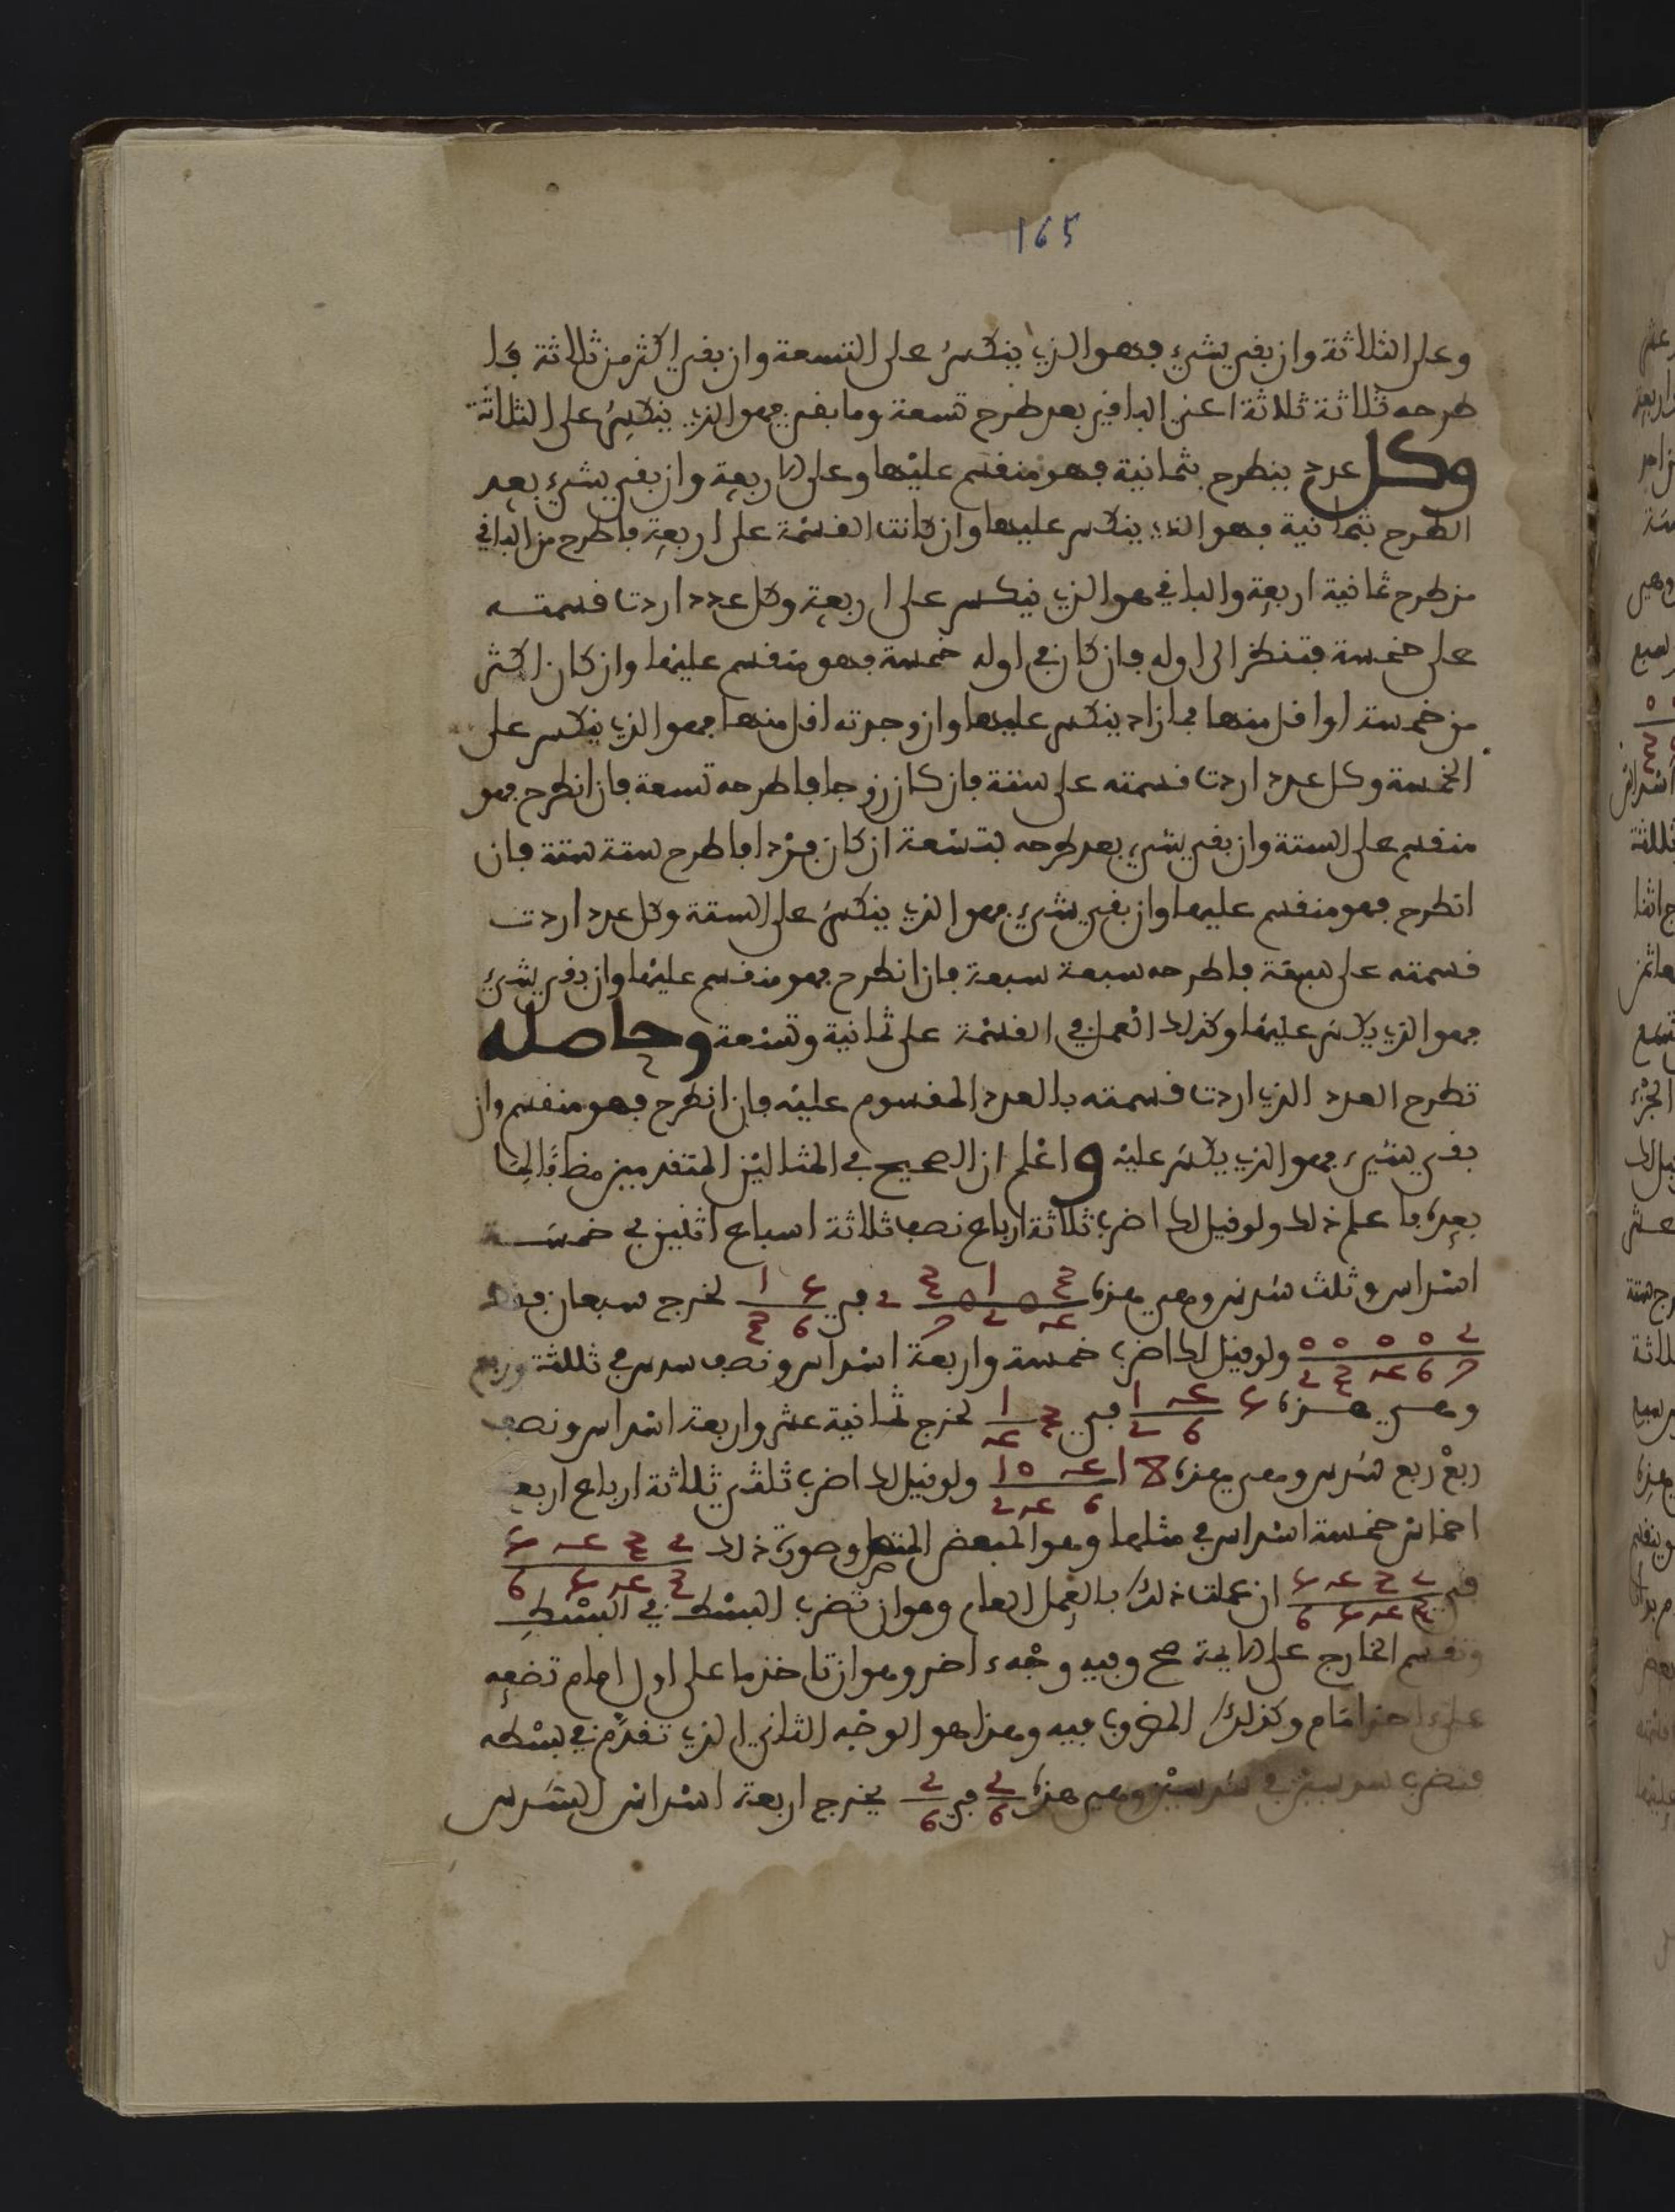 165
وعلى الثلاثة وان بقي شيء فهو الذي ينكسر على التسعة وان بقي اكثر من ثلاثة فا
طرحه ثلاثة ثلاثة اعني الباقي بعد طرح تسعة وما بقي فهو الذي ينكسر على الثلاثة
وكل عدد ينطرح بثمانية فهو منقسم عليها وعلى الاربعة وان بقي شيء بعد
الطرح بثمانية فهو الذي ينكسر عليها وان كانت القسمة على اربعة فاطرح من الباقي
من طرح ثمانية اربعة والباقي هو الذي ينكسر على اربعة وكل عدد اردت قسمته
على خمسة فتنظر الى اوله فان كان في اوله خمسة فهو منقسم عليها وان كان اكثر
من خمسة او اقل منها فما زاد ينكسر عليها وان وجدته اقل منها فهو الذي ينكسر على
الخمسة وكل عدد اردت قسمته على ستة فان كان زوجا فاطرحه تسعة فان انطرح فهو
منقسم على الستة وان بقي شيء بعد طرحه بتسعة او كان فردا فاطرح ستة ستة فان
انطرح فهو منقسم عليها وان بقي شيء فهو الذي ينكسر على الستة وكل عدد اردت
قسمته على سبعة فاطرحه سبعة سبعة فان انطرح فهو منقسم عليها وان بقي شيء
فهو الذي يكسر عليها وكذلك العمل في القسمة على ثمانية وتسعة وحاصله
تطرح العدد الذي اردت قسمته بالعدد المقسوم عليه فان انطرح فهو منقسم وان
بقي شيء فهو الذي يكسر عليه واعلم ان الصحيح في المثالين المتقدمين
بعده فاعلم ذلك ولو قيل لك اضرب ثلاثة ارباع نصف ثلاثة اسباع اثنين في خمسة
اسداس وثلث سدس وهي هذه في لخرج سبعان فقط
ولو قيل لك اضرب خمسة واربعة اسداس ونصف سدس في ثلثة وربع
وهي هذه في لخرج ثمانية عشر واربعة اسداس ونصف
ربع ربع سدس وهي هذه ولو قيل لك اضرب ثلثي ثلاثة ارباع اربعة
اخماس خمسة اسداس في مثلها وهو المبعض المتصل وصورة ذلك
في ان عملت ذلك بالعمل العام وهو ان تضرب البسط في البسط
وتقسم الخارج على الايمة صح وفيه وجه اخر وهو ان تاخذ ما على اول امام تضعه
على اخر امام وكذلك المضروب فيه وهذا هو الوجه الثاني الذي تقدم في بسطه
فتضرب سدسين في سدسين وهي هذه في يخرج اربعة اسداس السدس